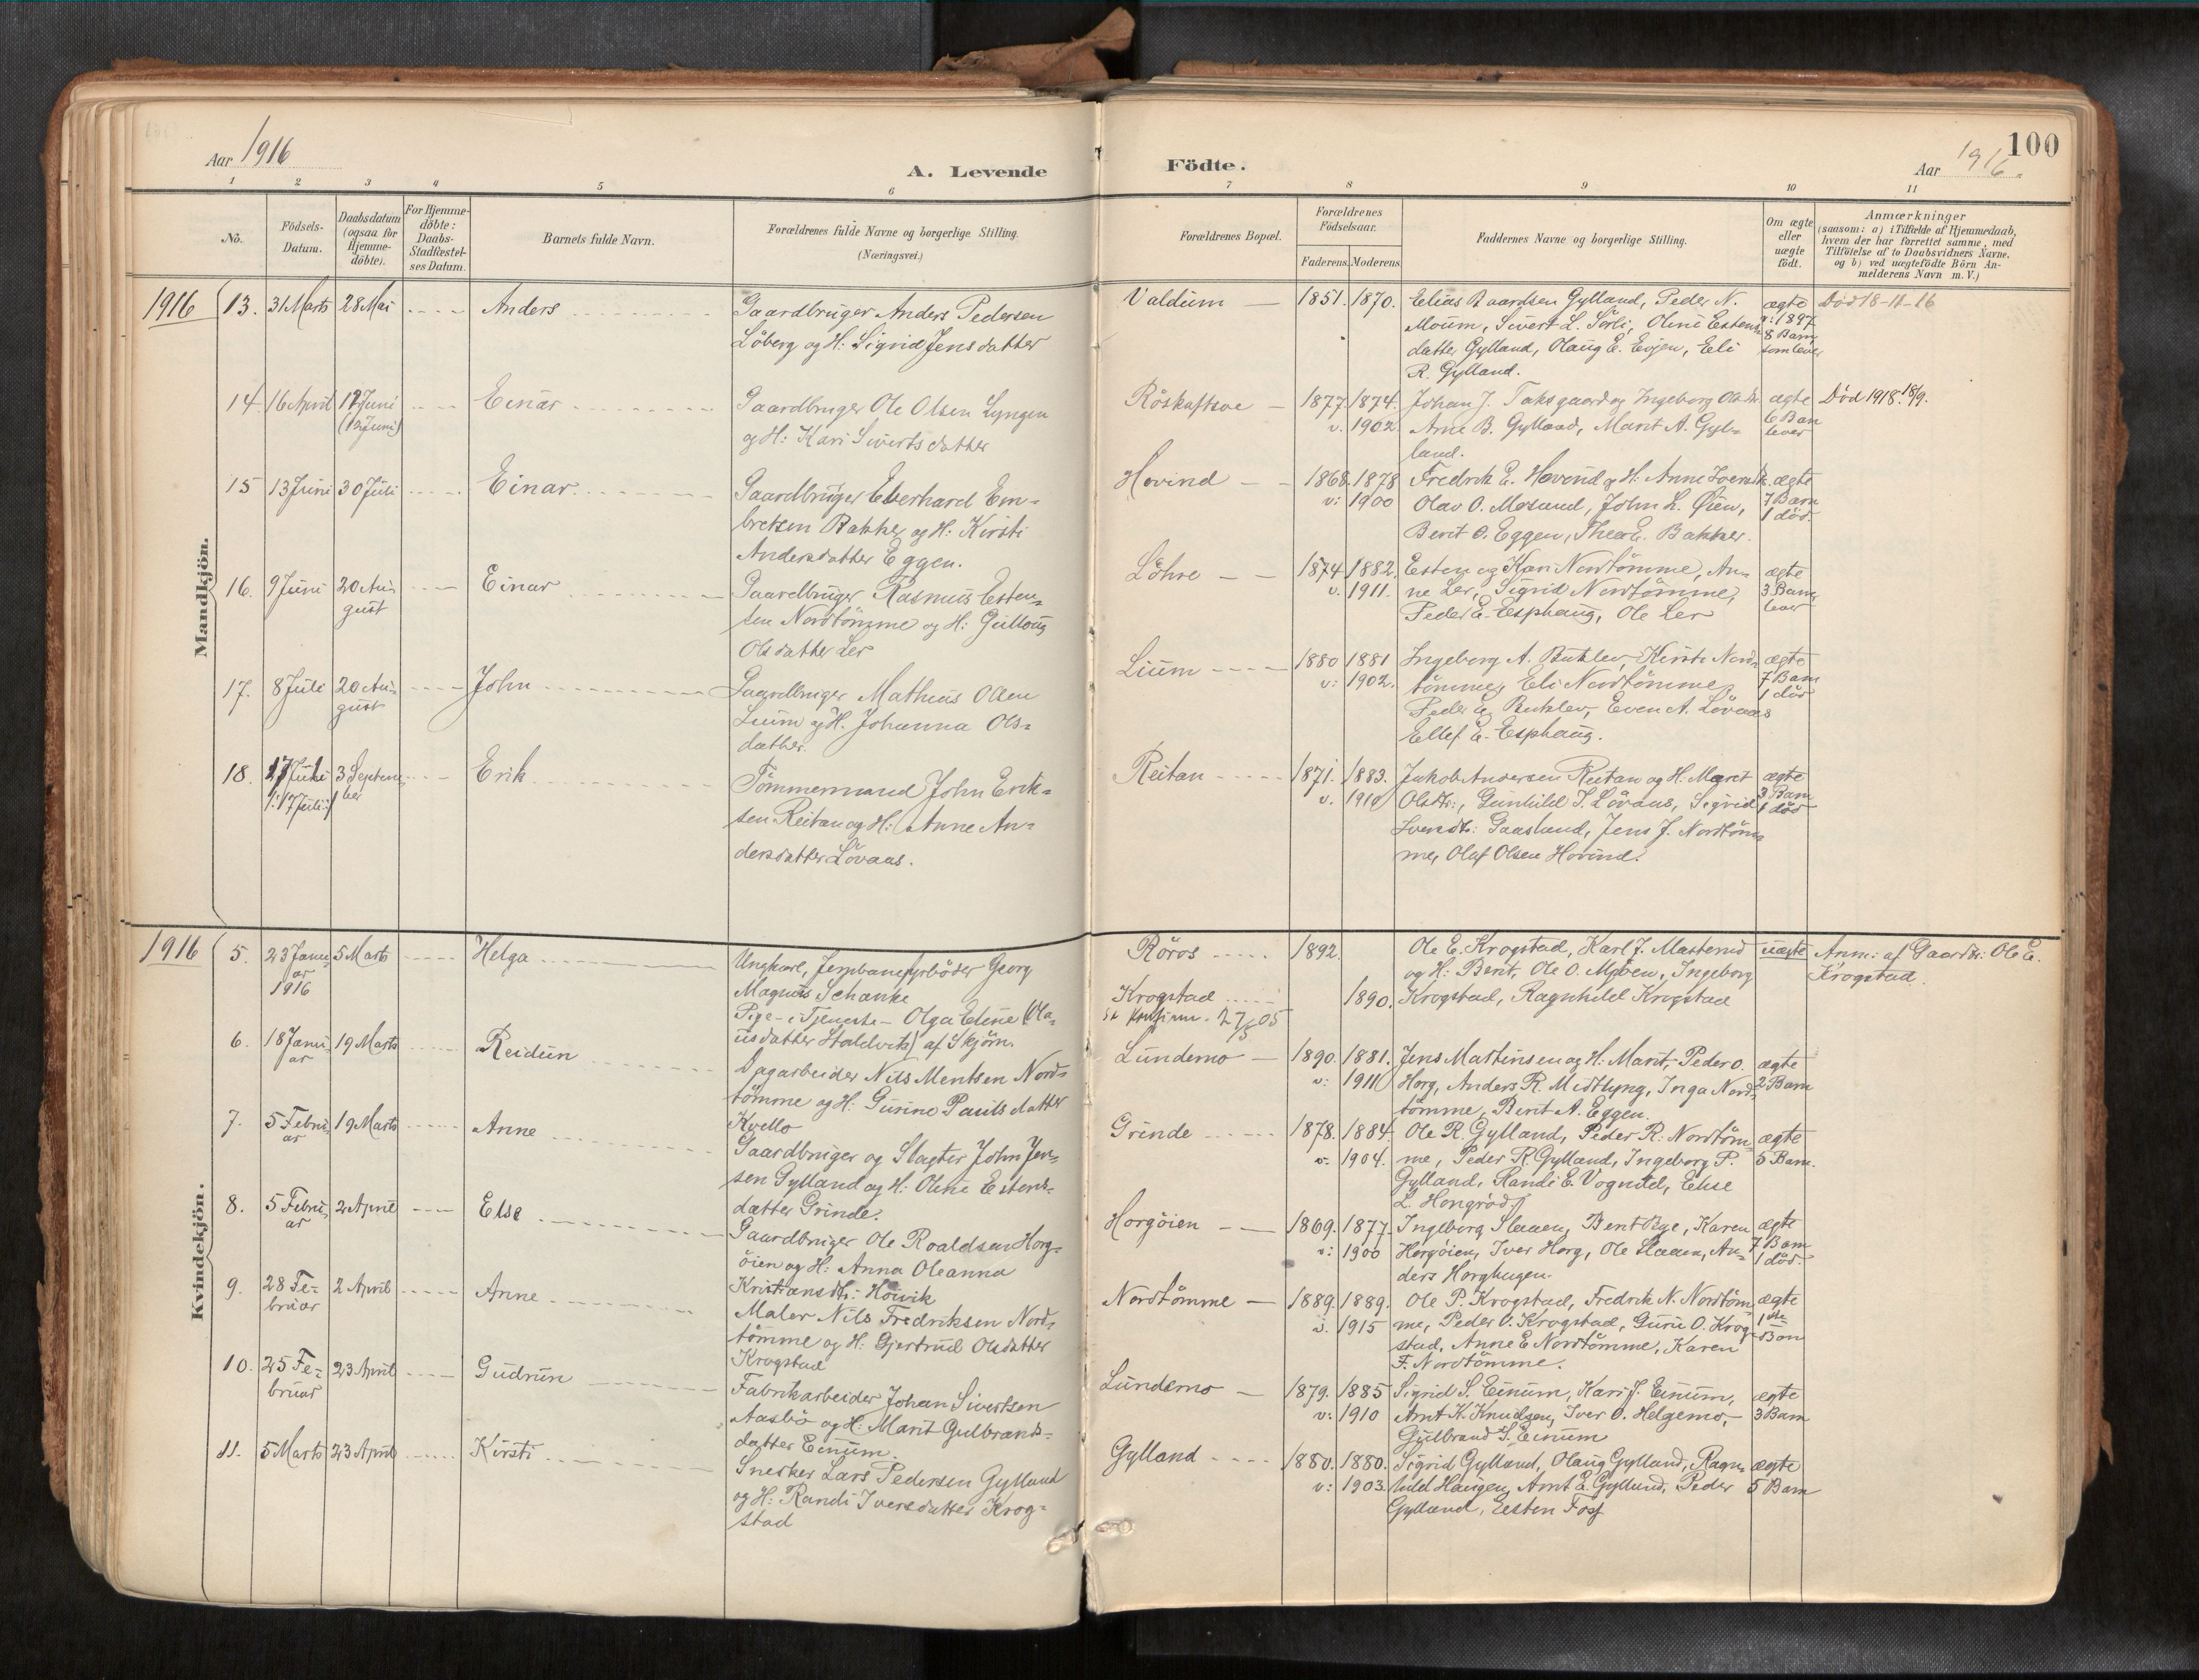 Aar 1916
A. Levende Födte.
Aar 1916.
100
1 2 3 4 5 6 7 8 9 10 11
No.
Födsels-
Datum.
Daabsdatum
(ogsaa for
Hjemme-
döbte).
For Hjemme-
döbte:
Daabs-
Stadfæstel-
ses Datum.
Barnets fulde Navn.
Forældrenes fulde Navne og borgerlige Stilling.
(Næringsvei.)
Forældrenes Bopæl.
Forældrenes
Födselsaar.
Faderens. Moderens.
Faddernes Navne og borgerlige Stilling.
Om ægte
eller
uægte
födt.
Anmærkninger
(saasom: a) i Tilfælde af Hjemmedaab,
hvem der har forrettet samme, med
Tilföielse af to Daabsvidners Navne.
og b) ved uægtefödte Börn An-
melderens Navn m. V.)
Mandkjön.
1916
13. 31 Marts 28 Mai Anders
Gaardbruger Anders Pedersen
Löberg og H: Sigrid Jensdatter
Valdum 1851. 1870.
Elias Baardsen Gylland, Peder N.
Moum, Sivert L. Sörli, Oline Estens
datter Gylland, Olaug E. Evjen, Eli
R. Gylland.
ægte
v: 1897
8 Barn
som lever
Död 18-11-16
14. 16 April 12 Juni
(12 Juni)
Einar
Gaardbruger Ole Olsen Lyngen
og H: Kari Sivertsdatter
Röskaftsve 1877. 1874.
v. 1902.
Johan J. Foksgaard og Ingeborg Olsdtr.
Arne B. Gylland, Marit A. Gyl-
land.
ægte
6 Barn
lever
Död 1918. 18/9.
15 13 Juni 30 Juli Einar
Gaardbruger Eberhard Em-
bretsen Bakke og H: Kirsti
Andersdatter Eggen.
Hovind 1868. 1878
v: 1900
Fredrik E. Hovind og H: Anne
Olav O. Mosund, John L. Øien,
Berit O. Eggen, Thea E. Bakker.
ægte
7 Barn
1 död.
16. 9 Juni 20 Au-
gust
Einar
Gaardbruger Rasmus Esten-
sen Nordtömme og H: Gulloug
Olsdatter Ler
Löhre 1874 1882.
v. 1911.
Esten og Kari Nordtömme, An-
ne Ler, Sigrid Nordtömme,
Peder E. Esphaug, Ole Ler
ægte
3 Barn
lever
17. 8 Juli 20 Au-
gust
John
Gaardbruger Mathias Olsen
Lium og H. Johanna Ols-
datter.
Lium 1880 1881
v: 1902.
Ingeborg A. Buklev, Kirsti Nord-
tömme, Eli Nordtömme,
Peder Buklev, Even A. Lövaas
Ellef E. Esphaug.
ægte
7 Barn
1 död
18. 17 Juli
/: 17 Juli :/
3 Septem-
ber
Erik
Tömmermand John Erik-
sen Reitan og H: Anne An-
dersdatter Lövaas.
Reitan 1871. 1883.
v. 1910
Jakob Andersen Reitan og H. Maret
Olsdtr:, Gunhild J. Lövaas, Sigrid
Svendtr: Gaaslund, Jens J. Nordtöm-
me, Olaf Olsen Hovind.
ægte
3 Barn
1 död
Kvindekjön.
1916
5. 23 Janu-
ar
1916
5 Marts Helga
Ungkarl, Jernbanefyrböder Georg
Magnus Schanke
Pige i Tjeneste Olga Eline (Ola-
usdatter Stoldvik) af Skjörn.
Röros 1892.
Krogstad 1890.
27/5 05
Ole E. Krogstad, Karl J. Masterud
og H: Berit, Ole O. Myöen, Ingeborg
Krogstad, Ragnhild Krogstad
uægte
Anm: af Gaardbr: Ole E.
Krogstad.
6. 18 Janu-
ar
19 Marts Reidun
Dagarbeider Nils Mentsen Nord-
tömme og H: Gurine Paulsdatter
Kvello
Lundemo 1890. 1881.
v: 1911
Jens Martinsen og H: Marit, Peder O.
Horg, Anders R. Midtlyng, Inga Nord-
tömme, Berit A. Eggen.
ægte
2 Barn
7. 5 Febru-
ar
19 Marts Anne
Gaardbruger og Slagter John Jen-
sen Gylland og H: Oline Estens-
datter Grinde.
Grinde 1878. 1884.
v. 1904.
Ole R. Gylland, Peder R. Nordtöm-
me, Peder R. Gylland, Ingeborg P.
Gylland, Randi E. Vognild, Else
L. Hongröd
ægte
5 Barn.
8. 5 Febru-
ar
2 April Else
Gaardbruger Ole Roaldsen Horg-
öien og H: Anna Oleanna
Kristiansdtr: Höivik
Horgöien 1869. 1877.
v: 1900
Ingeborg Slaaen, Berit Bye, Karen
Horgöien, Iver Horg, Ole Slaaen, An-
ders Horghugen.
ægte
7 Barn
1 död.
9. 28 Fe-
bruar
2 April Anne
Maler Nils Fredriksen Nord-
tömme og H. Gjertrud Olsdatter
Krogstad
Nordtömme 1889. 1889.
v. 1915
Ole P. Krogstad, Fredrik N. Nordtöm-
me, Peder O. Krogstad, Guru O. Krog-
stad, Anne E Nordtömme, Karen
F. Nordtömme.
ægte
1ste
Barn
10. 25 Fe-
bruar
23 April Gudrun
Fabrikarbeider Johan Sivertsen
Aasbö og H: Marit Gulbrands-
datter Einum.
Lundemo 1879. 1885
v: 1910
Sigrid S. Einum, Kari J. Einum,
Arnt K. Knudsen, Iver O. Helgemo,
Gulbrand S. Einum
ægte
3 Barn
11. 5 Marts 23 April Kirsti
Snekker Lars Pedersen Gylland
og H: Randi Iversdatter Krog-
stad
Gylland 1880. 1880.
v: 1903
Sigrid Gylland, Olaug Gylland, Ragn-
hild Haugen, Arnt E. Gylland, Peder
Gylland, Esten Foss
ægte
5 Barn